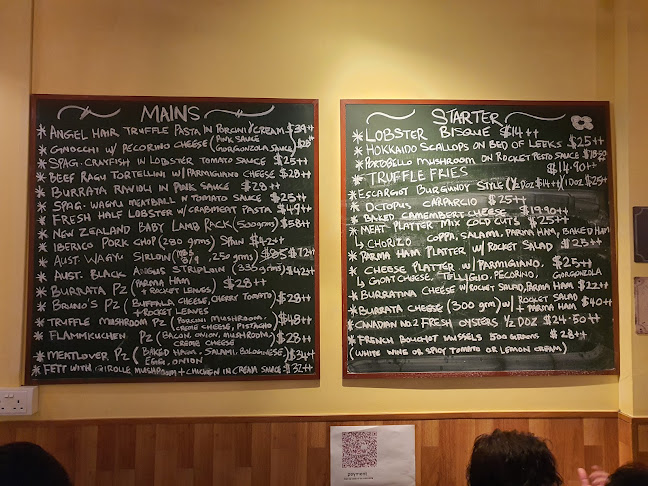 MAINS
* ANGEL HAIR TRUFFLE PASTA IN PORCINI CREAM $39++
* GNOCCHI W/ PECORINO CHEESE (PINK SAUCE / GORGONZOLA SAUCE) $28++
* SPAG. CRAYFISH IN LOBSTER TOMATO SAUCE $25++
* BEEF RAGU TORTELLINI W/ PARMIGIANO CHEESE $28++
* BURRATA RAVIOLI IN PINK SAUCE $28++
* SPAG. WAGYU MEATBALL IN TOMATO SAUCE $25++
* FRESH HALF LOBSTER W/ CRABMEAT PASTA $49++
* NEW ZEALAND BABY LAMB RACK (500gms) $58++
* IBERICO PORK CHOP (280 grms) SPAIN $42++
* AUST. WAGYU SIRLOIN (MBS 8/9, 250 grms) $85 $72++
* AUST. BLACK ANGUS STRIPLOIN (335 grms) $42++
* BURRATA PZ (PARMA HAM + ROCKET LEAVES) $28++
* BRUNO'S PZ (BUFFALA CHEESE, CHERRY TOMATO) $28++
+ ROCKET LEAVES
* TRUFFLE MUSHROOM PZ (PORCINI MUSHROOM, $48++
CREME CHEESE, PISTACHIO)
* FLAMMKUCHEN PZ (BACON, ONION, MUSHROOM) $28++
CREME CHEESE
* MEATLOVER PZ (BAKED HAM, SALAMI, BOLOGNESE, $34++
EGG, ONION
* FETT WITH GIROLLE MUSHROOM + CHICKEN IN CREAM SAUCE $32++
STARTER
* LOBSTER BISQUE $14++
* HOKKAIDO SCALLOPS ON BED OF LEEKS $25++
* PORTOBELLO MUSHROOM ON ROCKET PESTO SAUCE
* TRUFFLE FRIES $14.90++
* ESCARGOT BURGUNDY STYLE (½ DOZ $14++) 1 DOZ $25++
* OCTOPUS CARPARCIO $25++
* BAKED CAMEMBERT CHEESE $19.90++
* MEAT PLATTER MIX COLD CUTS $25++
↳ CHORIZO COPPA, SALAMI, PARMA HAM, BAKED HAM
* PARMA HAM PLATTER W/ ROCKET SALAD $25++
* CHEESE PLATTER W/ PARMIGIANO, $25++
↳ GOAT CHEESE, TELLIGIO, PECORINO, GORGONZOLA
* BURRATINA CHEESE W/ ROCKET SALAD, PARMA HAM $22++
* BURRATA CHEESE (300 grm) W/ ROCKET SALAD + PARMA HAM $40++
* CANADIAN NO2 FRESH OYSTERS ½ DOZ $24.50++
* FRENCH BOUCHOT MUSSELS 500 GRAMS $28++
(WHITE WINE OR SPICY TOMATO OR LEMON CREAM)
payment